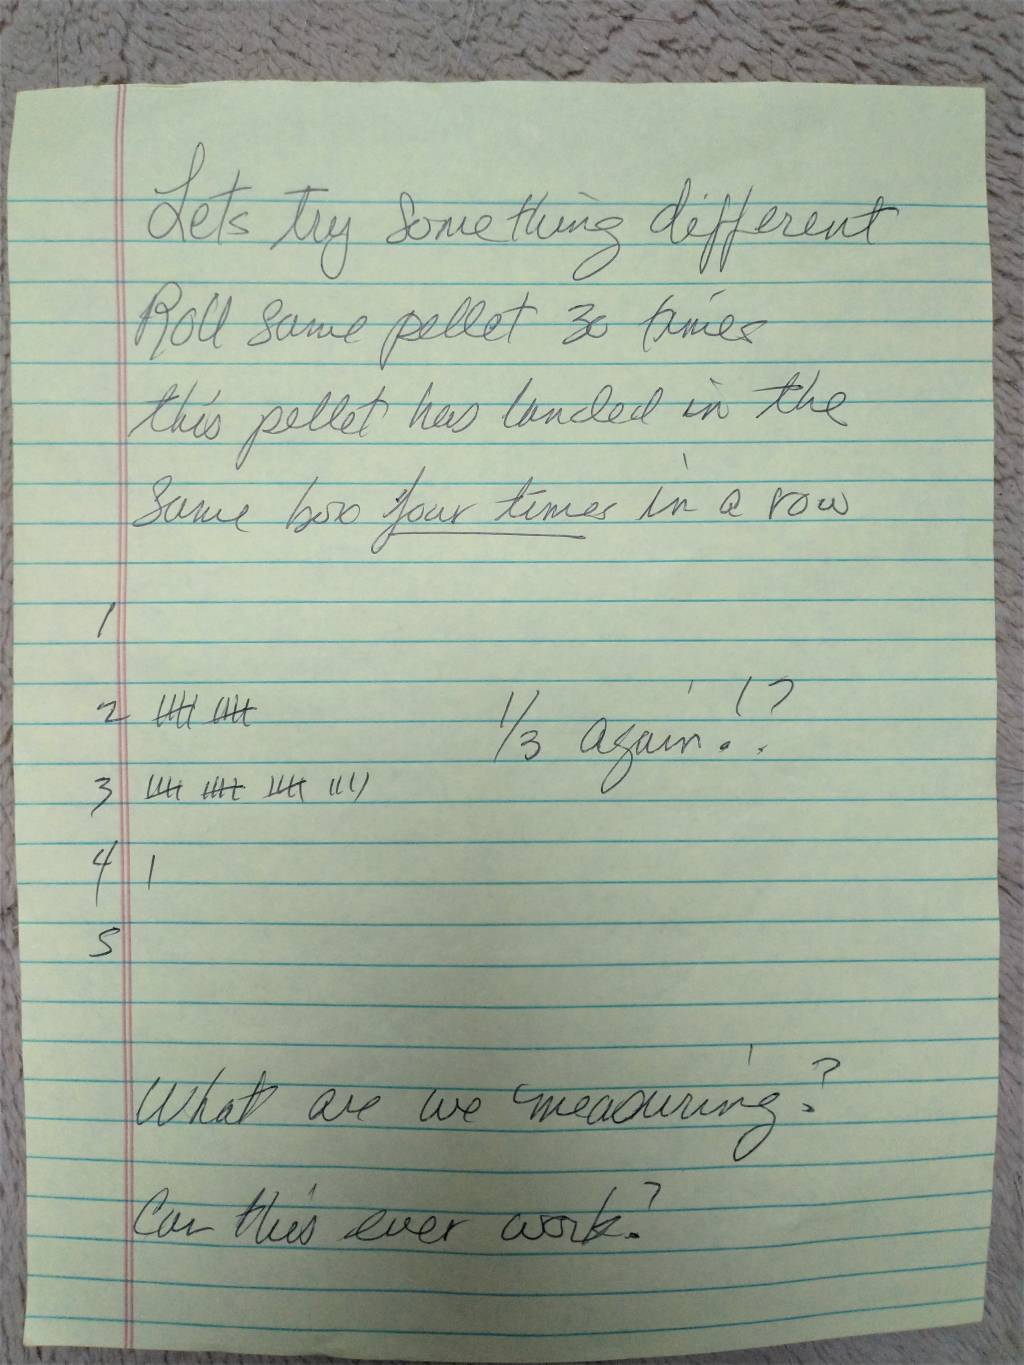 Lets try something different
Roll same pellet 30 times
this pellet has landed in the
same box four times in a row
1
2 |||| ||||
1/3 again!?
3 |||| |||| |||| ||||
4 |
5
What are we measuring?
Can this ever work?